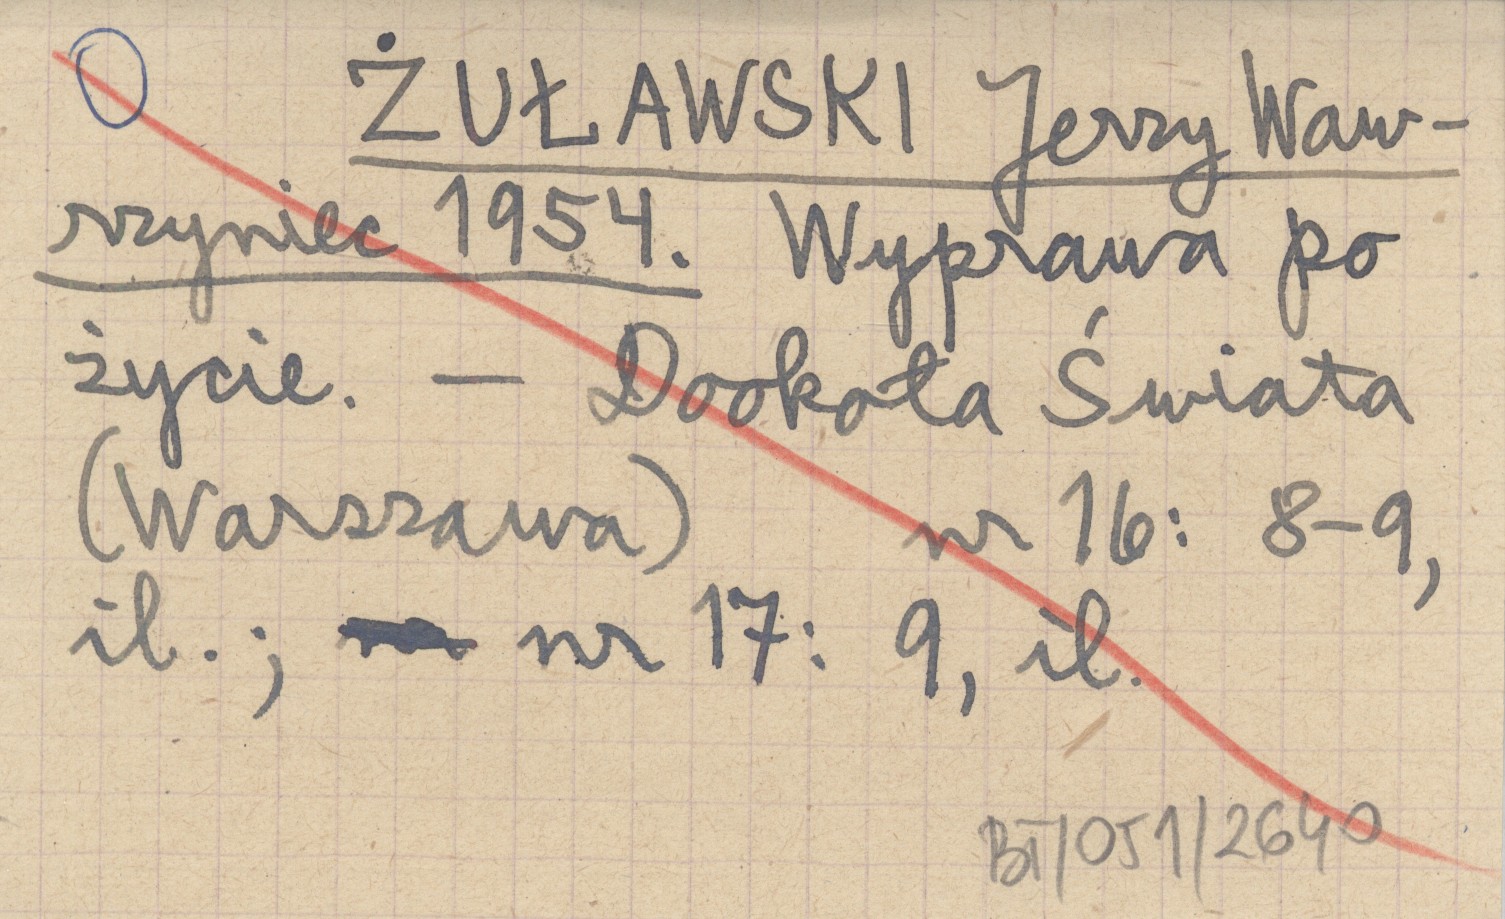 ŻUŁAWSKI Jerzy Waw-
rzyniec 1954. Wyprawa po
życie. — Dookoła Świata
(Warszawa) nr 16: 8-9,
il.; nr 17: 9, il.
BT/051/2640